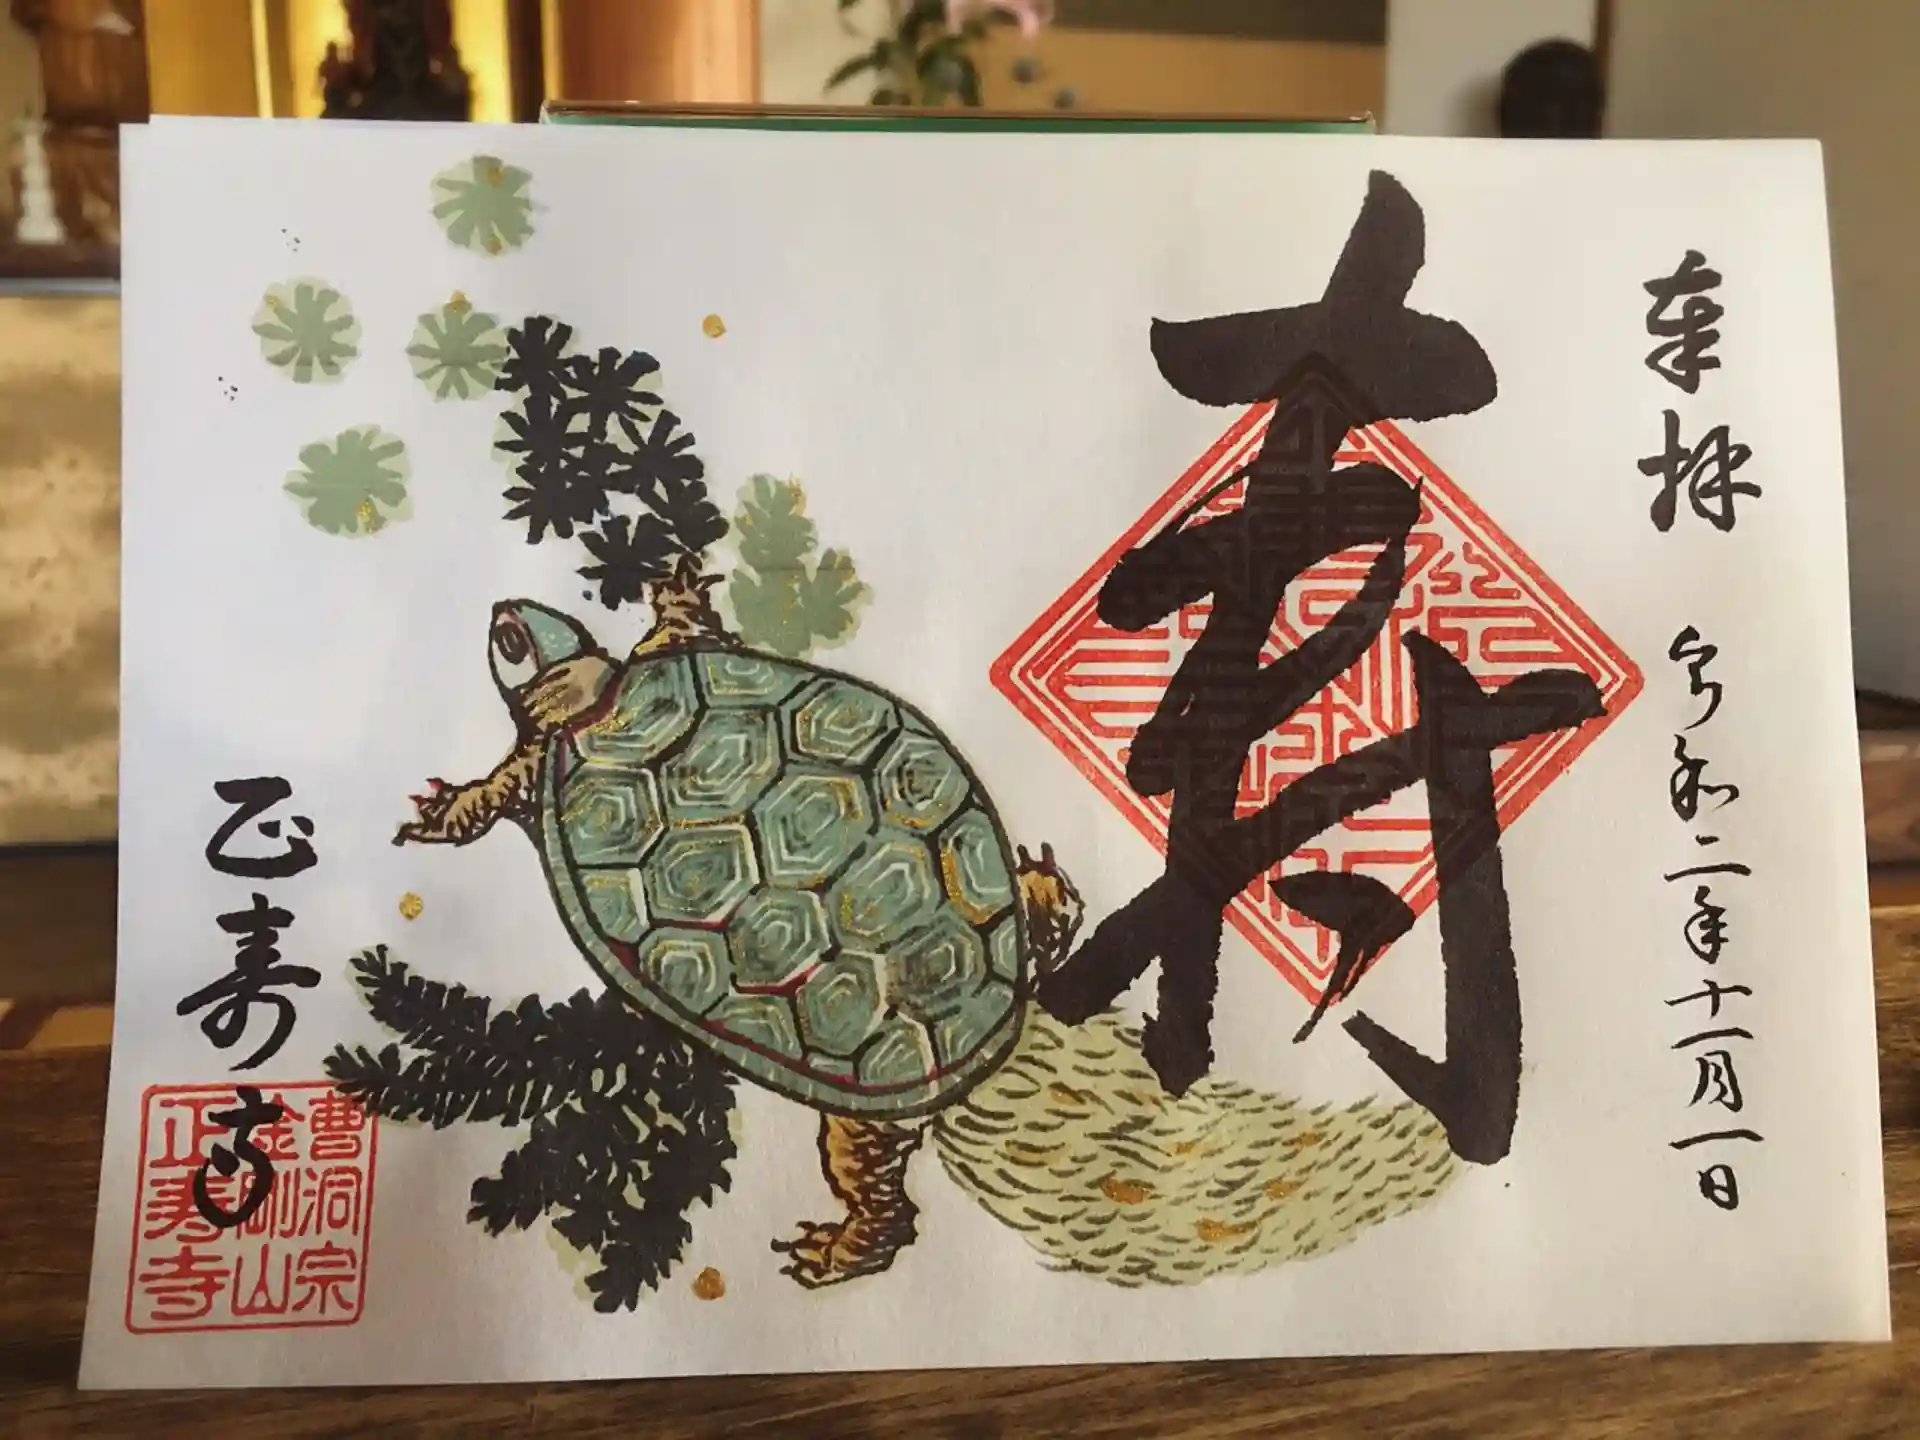 奉拝
令和二年十一月一日
寿
正寿寺
曹洞宗
金剛山
正寿寺